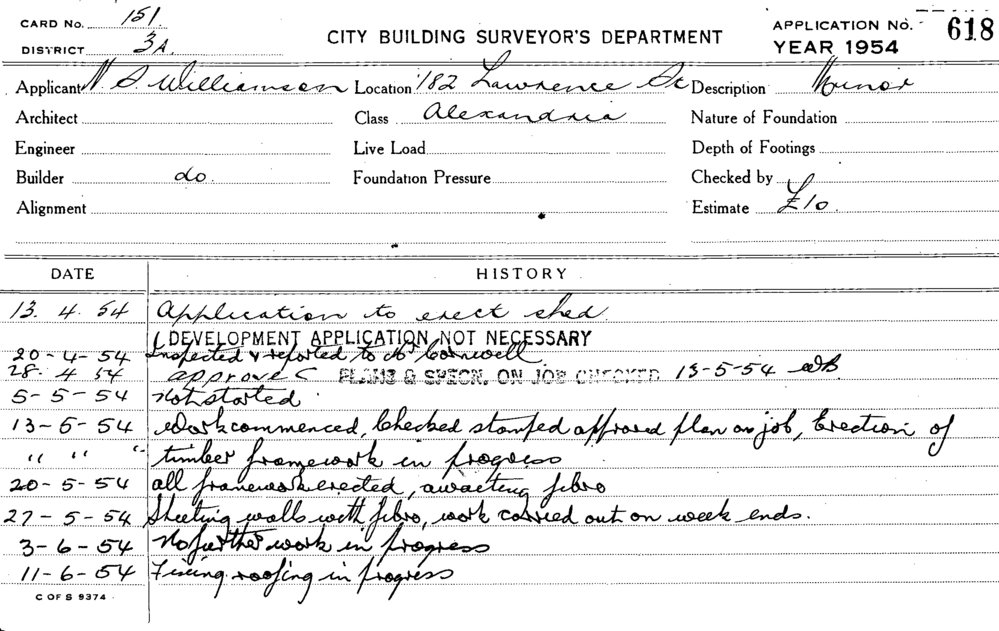 CARD No. 151.
DISTRICT 3A
CITY BUILDING SURVEYOR'S DEPARTMENT
APPLICATION No. 618
YEAR 1954
Applicant N. S. Williamson Location 182 Lawrence St Description Minor
Architect Class Alexandria Nature of Foundation
Engineer Live Load Depth of Footings
Builder do. Foundation Pressure Checked by
Alignment Estimate £10.
DATE HISTORY
13. 4. 54 Application to erect shed.
DEVELOPMENT APPLICATION NOT NECESSARY
20-4-54 Inspected & reported to Mr Cornwell
28. 4 54 approved PLANS & SPECN. ON JOB CHECKED 13-5-54
5-5-54 Not started.
13-5-54 Work commenced, Checked stamped approved plan on job, Erection of
" " " timber framework in progress
20-5-54 all framework erected, awaiting fibro
27-5-54 Sheeting walls with fibro, work carried out on week ends.
3-6-54 No further work in progress
11-6-54 Fixing roofing in progress
C OF S 9374